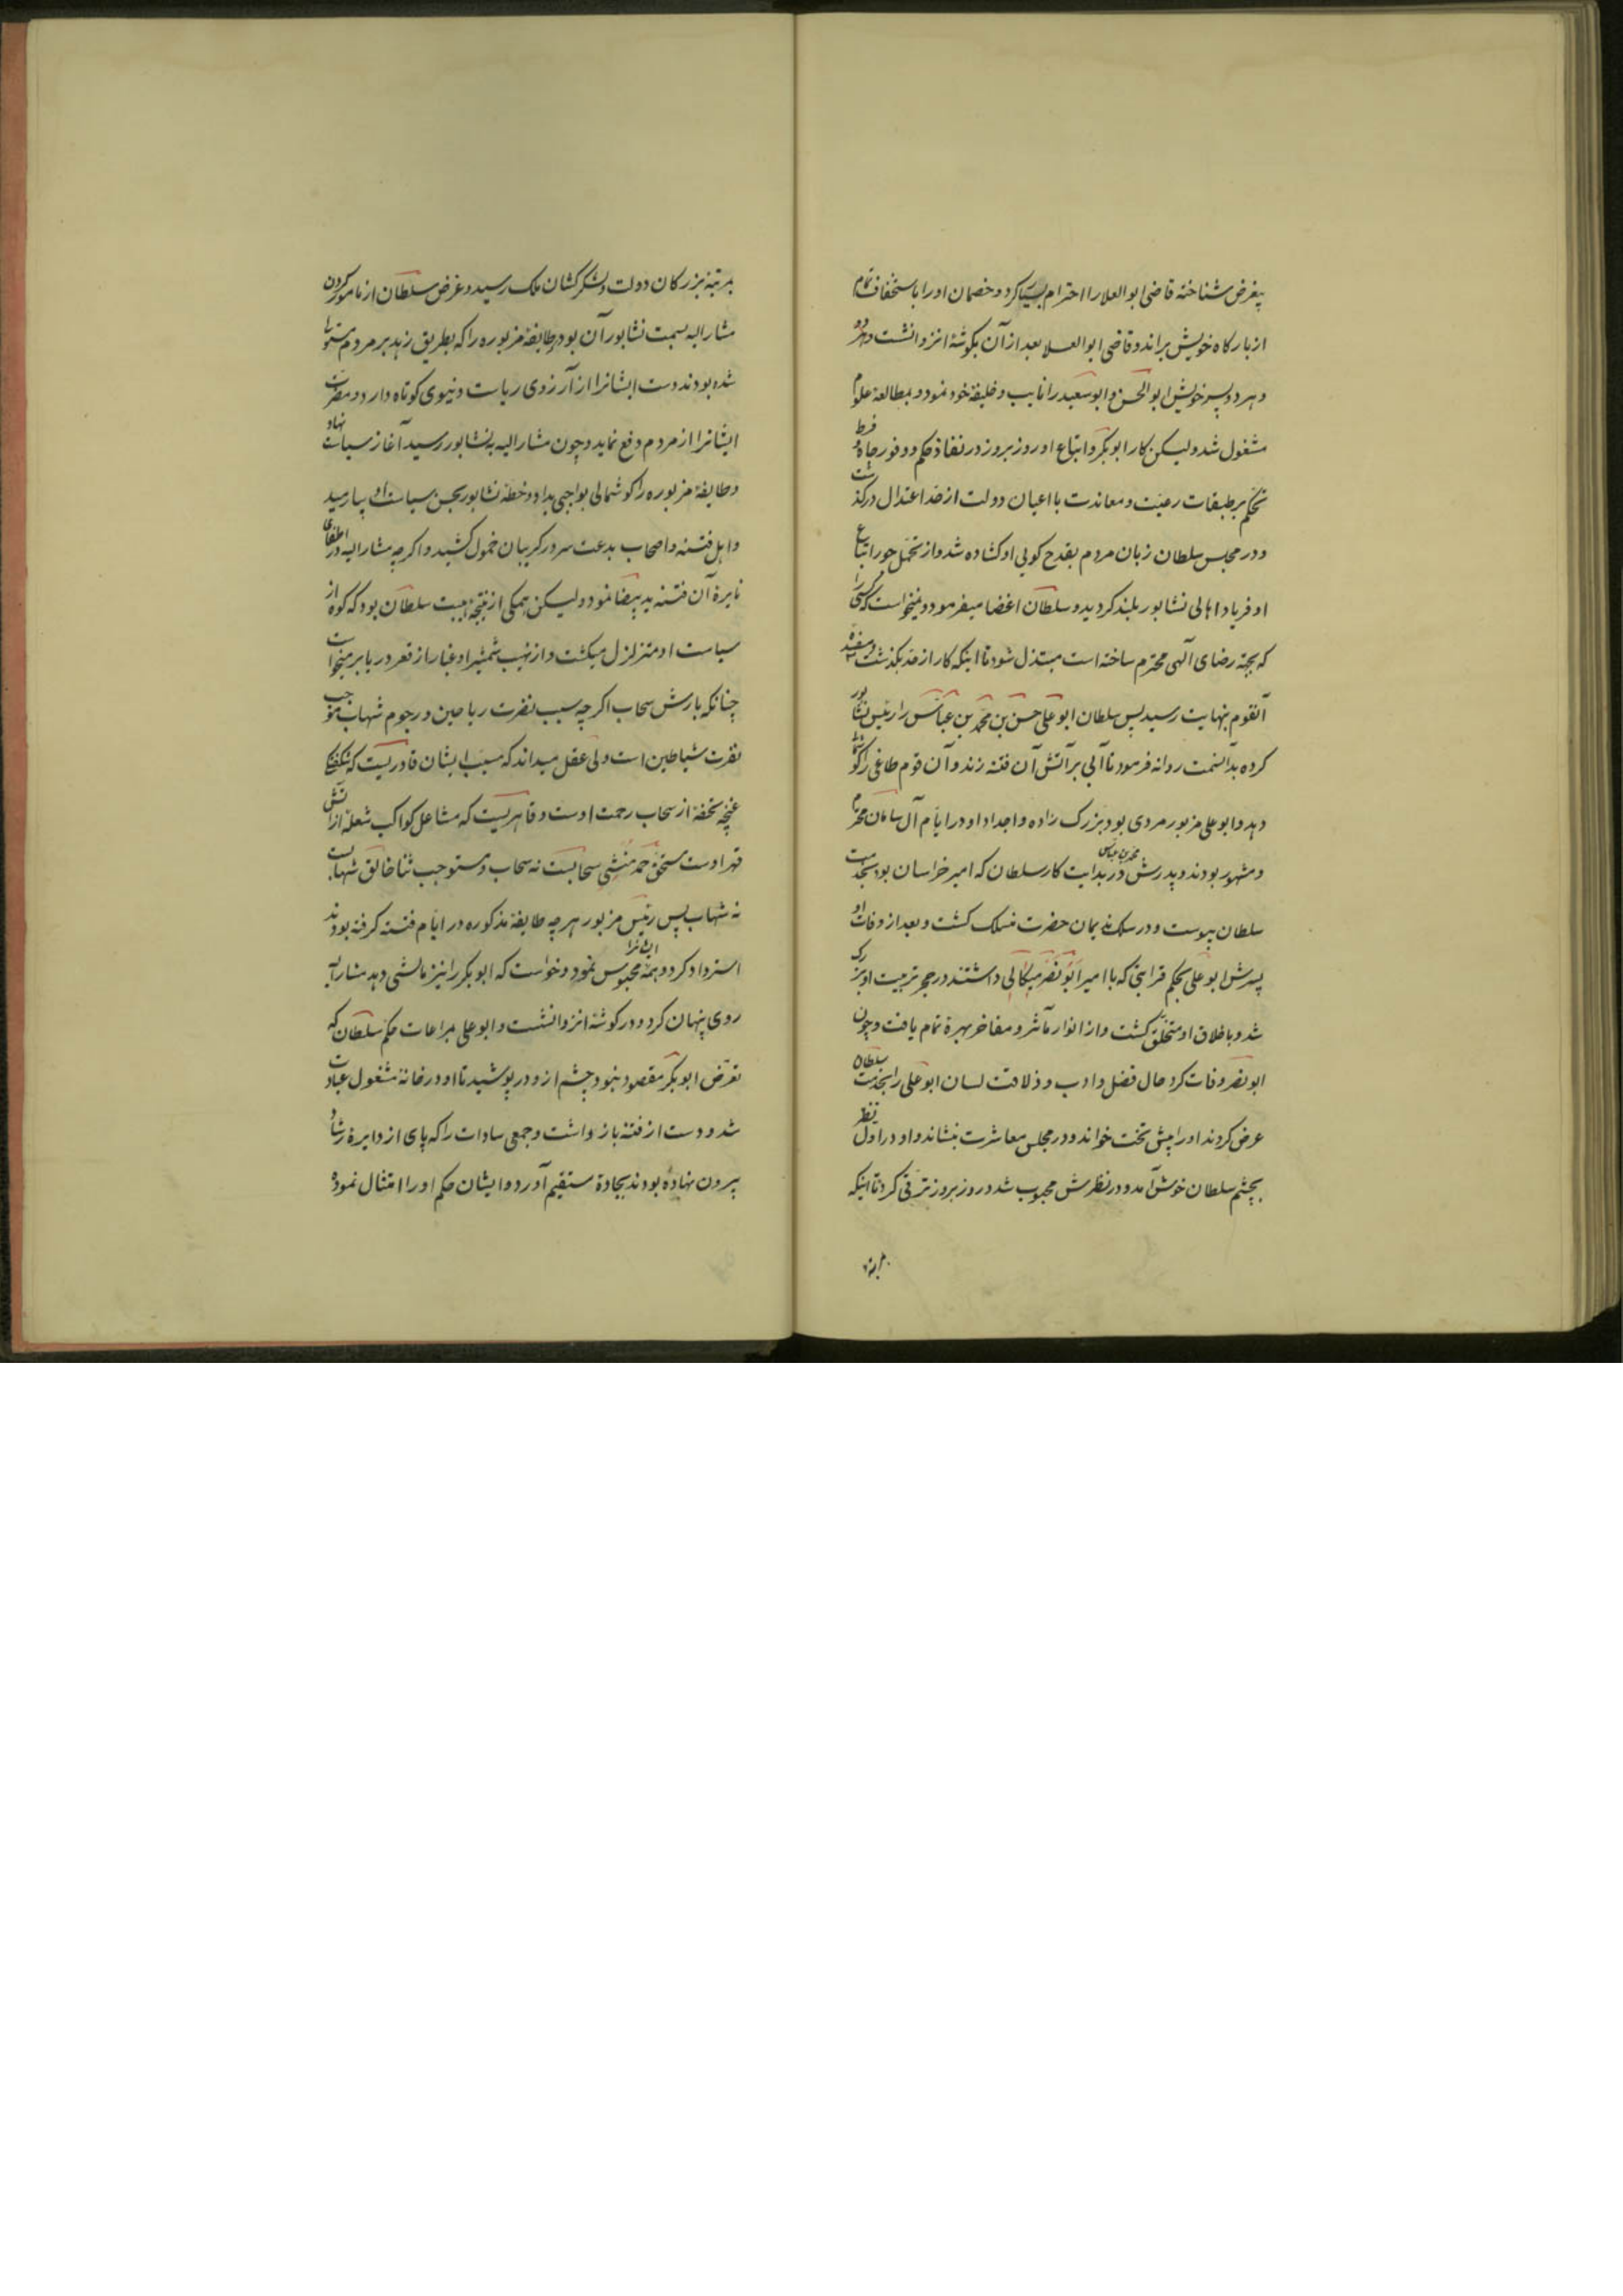 بیغرض شناخته قاضی ابو العلا را احترام بسیار کرد و خصمان او را باستخفاف تمام
از بارکاه خویش براند و قاضی ابو العلا بعد از آن بکوشهٔ انزوا نشست و هر دو
و هر دو پسر خویش ابو الحسن و ابو سعید را نایب و خلیفهٔ خود نمود و بمطالعهٔ علوم
مشغول شد و لیکن کار ابو بکر و اتباع او روز بروز در نفاذ حکم و وفور جاه و فرط
تحکم بر طبقات رعیت و معاندت با اعیان دولت از حد اعتدال درکذشت
و در مجلس سلطان زبان مردم بقدح کویی او کشاده شد و از تحمل جور اتباع
او فریاد اهالی نشابور بلند کردید و سلطان اغضا میفرمود و نمیخواست که کسی را
که بجهة رضای آلهی محترم ساخته است مبتذل شود تا اینکه کار از حد بکذشت و مفسدهٔ
آنقوم بنهایت رسید پس سلطان ابو علی حسن بن محمد بن عباس را رئیس نشابور
کرده بدانسمت روانه فرمود تا آبی بر آتش آن فتنه زند و آن قوم طاغی را کوشمال
دهد و ابو علی مزبور مردی بود بزرک زاده و اجداد او در ایام آل سامان محترم
و مشهور بودند و پدرش محمد بن عباس در بدایت کار سلطان که امیر خراسان بود بخدمت
سلطان پیوست و در سلک ندیمان حضرت منسلک کشت و بعد از وفات او
پسرش ابو علی بحکم قرابتی که با امیر ابو نصر میکالی داشتند در حجر تربیت او بزرک
شد و باخلاق او متخلق کشت و از انوار مآثر و مفاخر بهرهٔ تمام یافت و چون
ابو نصر وفات کرد حال فضل و ادب و ذلاقت لسان ابو علی را بخدمت سلطان
عرض کردند او را پیش تخت خواند و در مجلس معاشرت بنشاند و او در اول نظر
بچشم سلطان خوش آمد و در نظرش محبوب شد و روز بروز ترقی کرد تا اینکه
بمرتبهٔ
بمرتبهٔ بزرکان دولت و لشکرکشان ملک رسید و غرض سلطان از مامور کردن
مشار الیه بسمت نشابور آن بود که طایفهٔ مزبوره را که بطریق زهد بر مردم مستولی
شده بودند دست ایشانرا از آرزوی ریاست دنیوی کوتاه دارد و مضرت
ایشانرا از مردم دفع نماید و چون مشار الیه به نشابور رسید آغاز سیاست نهاد
و طایفهٔ مزبوره را کوشمالی بواجبی بداد و خطهٔ نشابور بحسن سیاست او بیارمید
و اهل فتنه و اصحاب بدعت سر در کریبان خمول کشید و اکر چه مشار الیه در اطفای
نایرهٔ آن فتنه ید بیضا نمود و لیکن همکی از نتیجهٔ هیبت سلطان بود که کوه از
سیاست او متزلزل میکشت و از نهیب شمشیر او غبار از قعر دریا برمیخواست
چنانکه بارش سحاب اکر چه سبب نضرت ریاحین و رجوم شهاب موجب
نفرت شیاطین است ولی عقل میداند که مسبب ایشان قادریست که شکفتکی
غنچه تحفهٔ از سحاب رحمت اوست و قاهریست که مشاعل کواکب شعلهٔ از آتش
قهر اوست مستحق حمد منشی سحابست نه سحاب و مستوجب ثنا خالق شهابست
نه شهاب پس رئیس مزبور هر چه طایفهٔ مذکوره در ایام فتنه کرفته بودند
استرداد کرد و همه ایشانرا محبوس نمود و خواست که ابو بکر را نیز مالشی دهد مشار الیه
روی پنهان کرد و در کوشهٔ انزوا نشست و ابو علی مراعات حکم سلطان که
تعرض ابو بکر مقصود نبود چشم از و در پوشید تا او در خانه مشغول عبادت
شد و دست از فتنه باز داشت و جمعی سادات را که پای از دایرهٔ رشاد
بیرون نهاده بودند بجادهٔ مستقیم آورد و ایشان حکم او را امتثال نمود